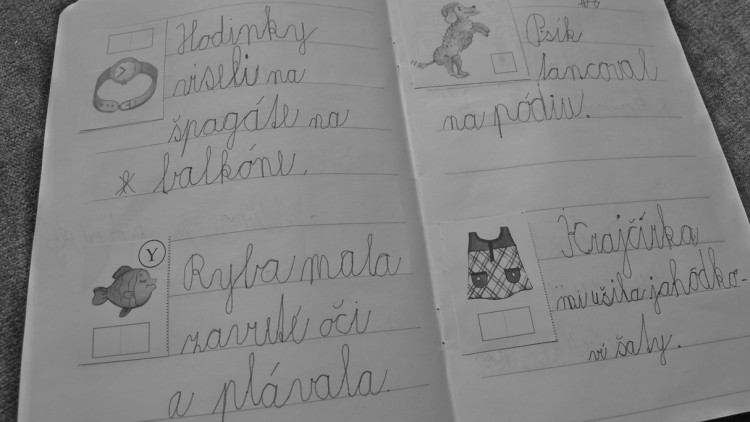 Hodinky
viseli na
špagáte na
balkóne.
Y
Ryba mala
zavreté oči
a plávala.
Psík
tancoval
na pódiu.
Krajčírka
mi ušila jahôdko-
vé šaty.